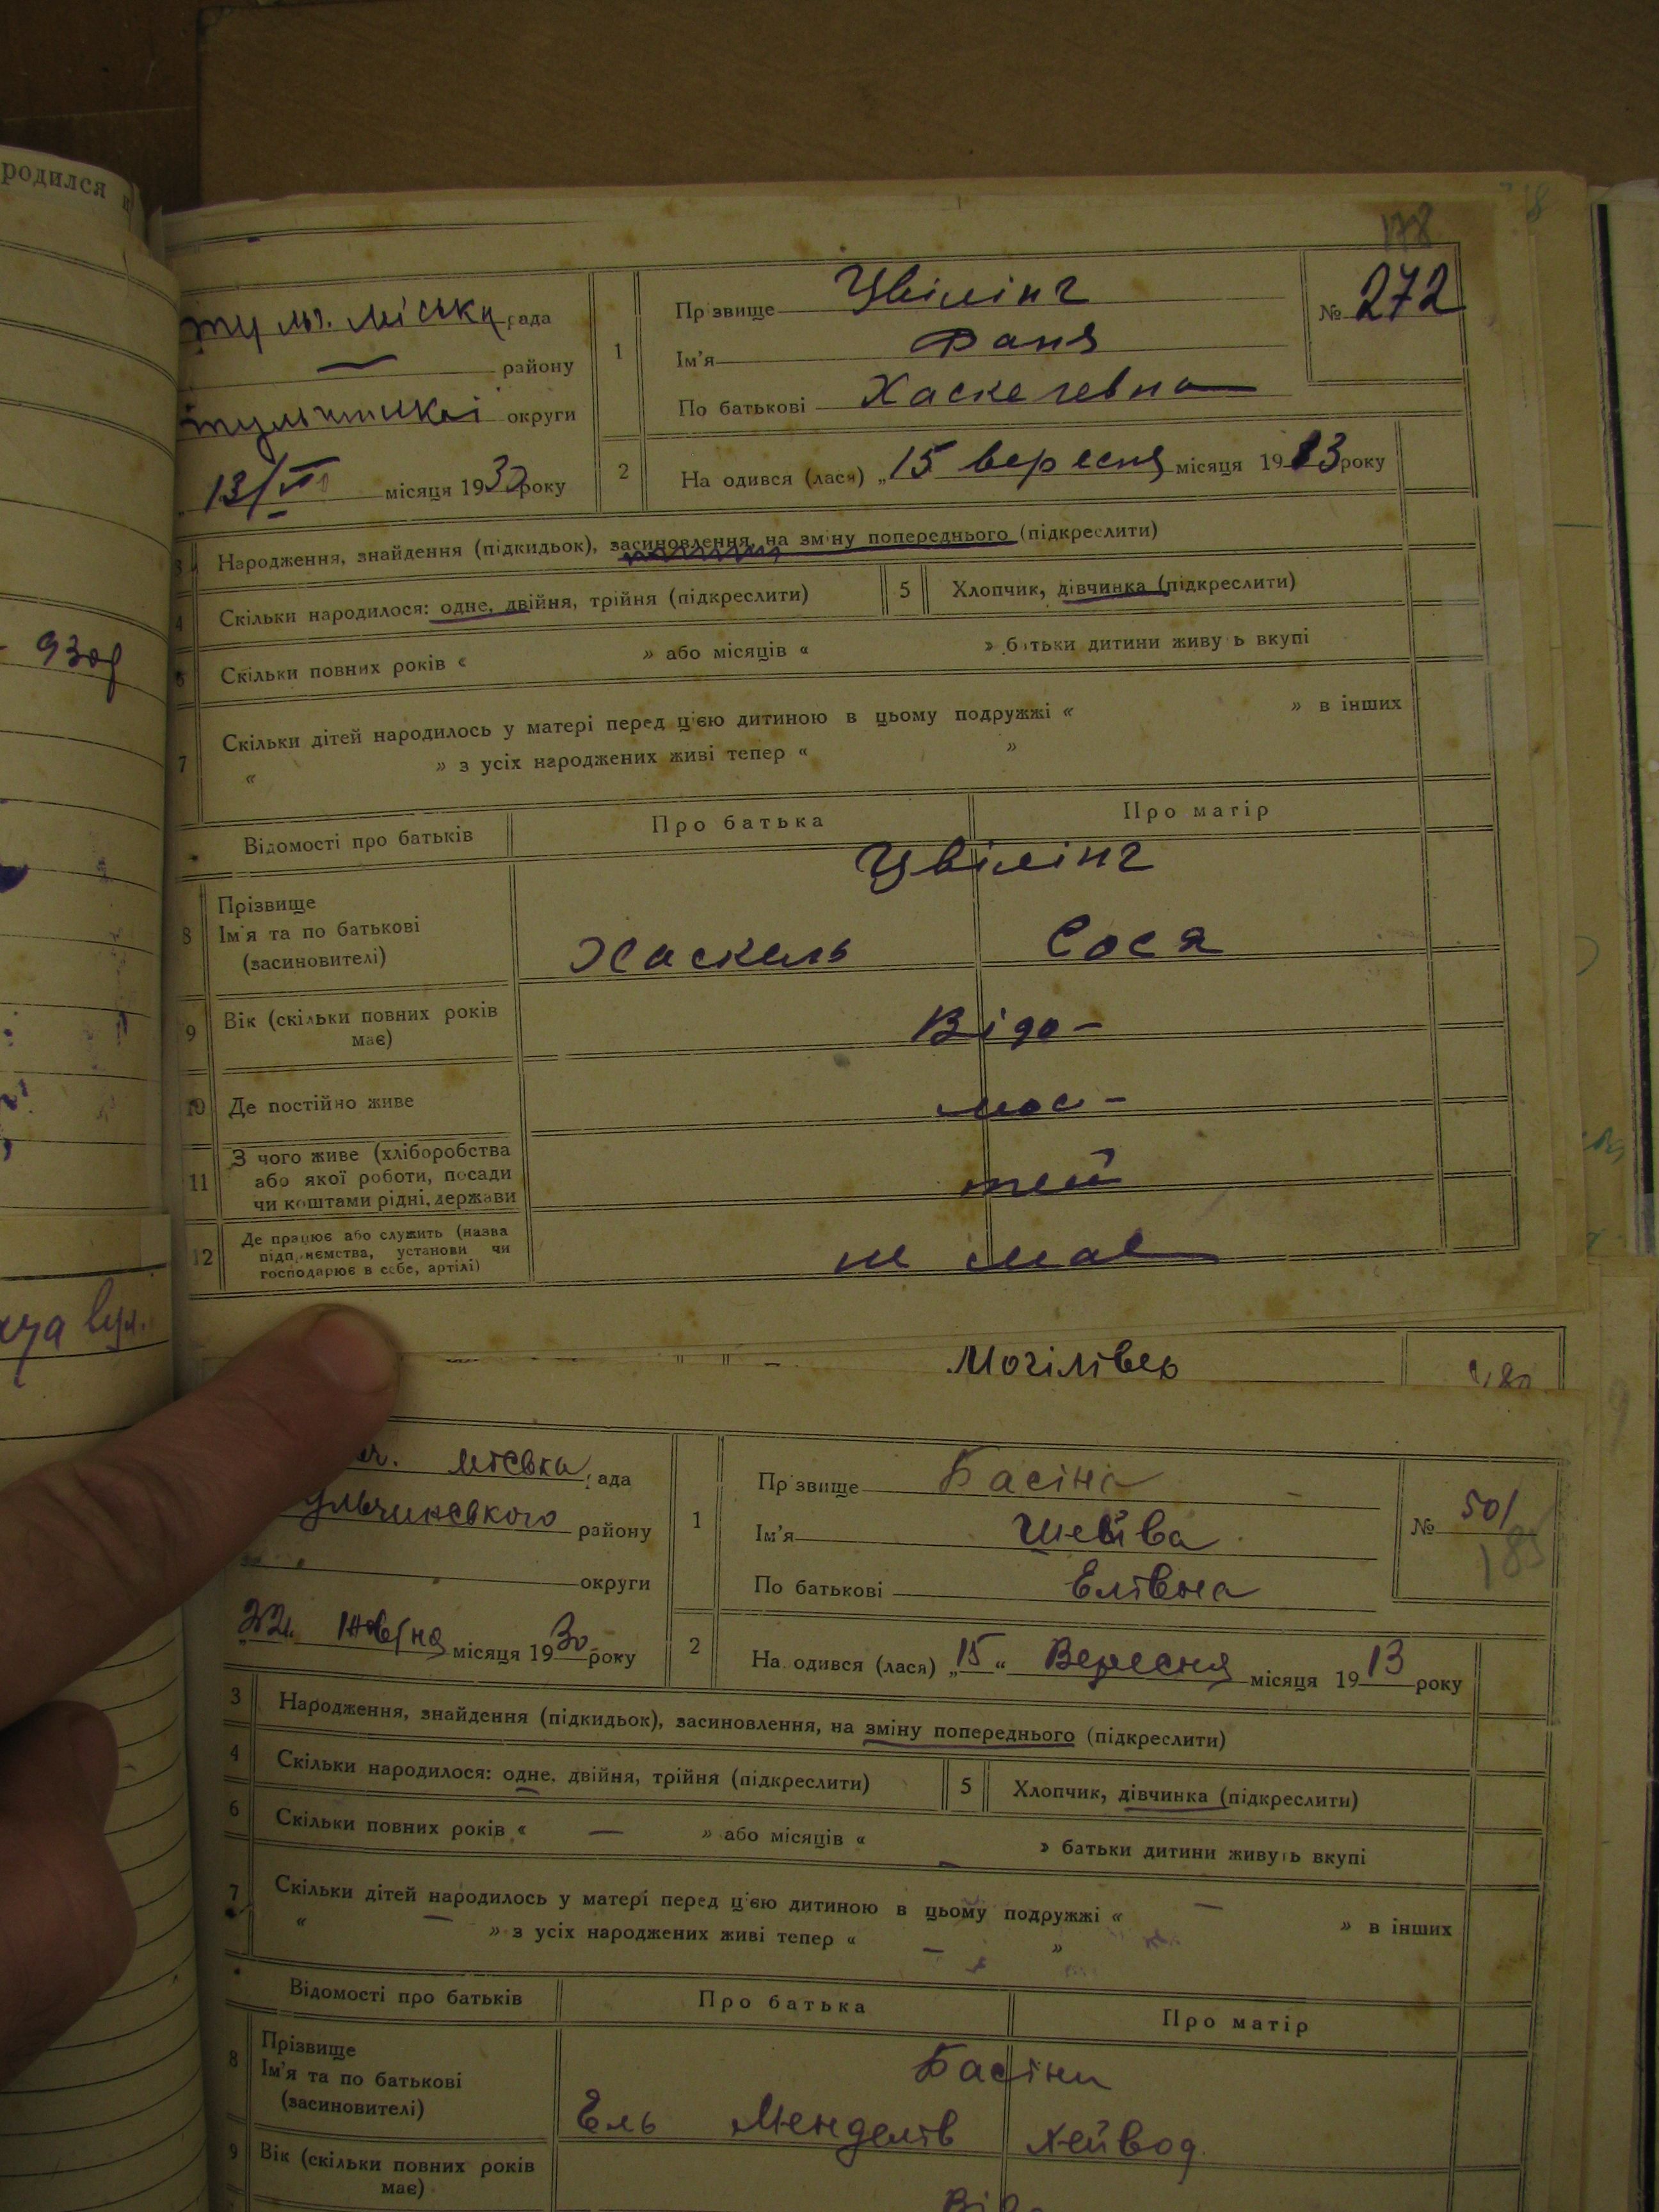 родился
93
178
тульч. міська рада
— району
тульчинської округи
13/VI місяця 1930 року
1
Прізвище Цвілінг
Ім'я Фаня
По батькові Хаскелевна
№ 272
2
На одився (лася) „15 вересня місяця 1913 року
3 Народження, знайдення (підкидьок), засиновлення, на зміну попереднього (підкреслити)
4 Скільки народилося: одне, двійня, трійня (підкреслити)
5 Хлопчик, дівчинка (підкреслити)
6 Скільки повних років « » або місяців « » батьки дитини живу ь вкупі
7 Скільки дітей народилось у матері перед ц'єю дитиною в цьому подружжі « » в інших
« » з усіх народжених живі тепер « »
Відомості про батьків
Про батька
Про матір
Цвілінг
8 Прізвище
Ім'я та по батькові
(засиновителі)
Хаскель Сося
9 Вік (скільки повних років
має)
Відо-
10 Де постійно живе
мос-
11 З чого живе (хліборобства
або якої роботи, посади
чи коштами рідні, держави
тей
12 Де працює або служить (назва
підприємства, установи чи
господарює в себе, артілі)
не має
вул.
Могілівер
міська рада
ульчинєвкого району
— округи
22. Жовтня місяця 1930 року
1
Прізвище Басіна
Ім'я Шейва
По батькові Елівна
№ 501
185
2
На одився (лася) „15“ Вересня місяця 1913 року
3 Народження, знайдення (підкидьок), засиновлення, на зміну попереднього (підкреслити)
4 Скільки народилося: одне, двійня, трійня (підкреслити)
5 Хлопчик, дівчинка (підкреслити)
6 Скільки повних років « — » або місяців « — » батьки дитини живуь вкупі
7 Скільки дітей народилось у матері перед ц'єю дитиною в цьому подружжі « — » в інших
« — » з усіх народжених живі тепер « — »
Відомості про батьків
Про батька
Про матір
Басіни
8 Прізвище
Ім'я та по батькові
(засиновителі)
Ель Менделів Хейвод
9 Вік (скільки повних років
має)